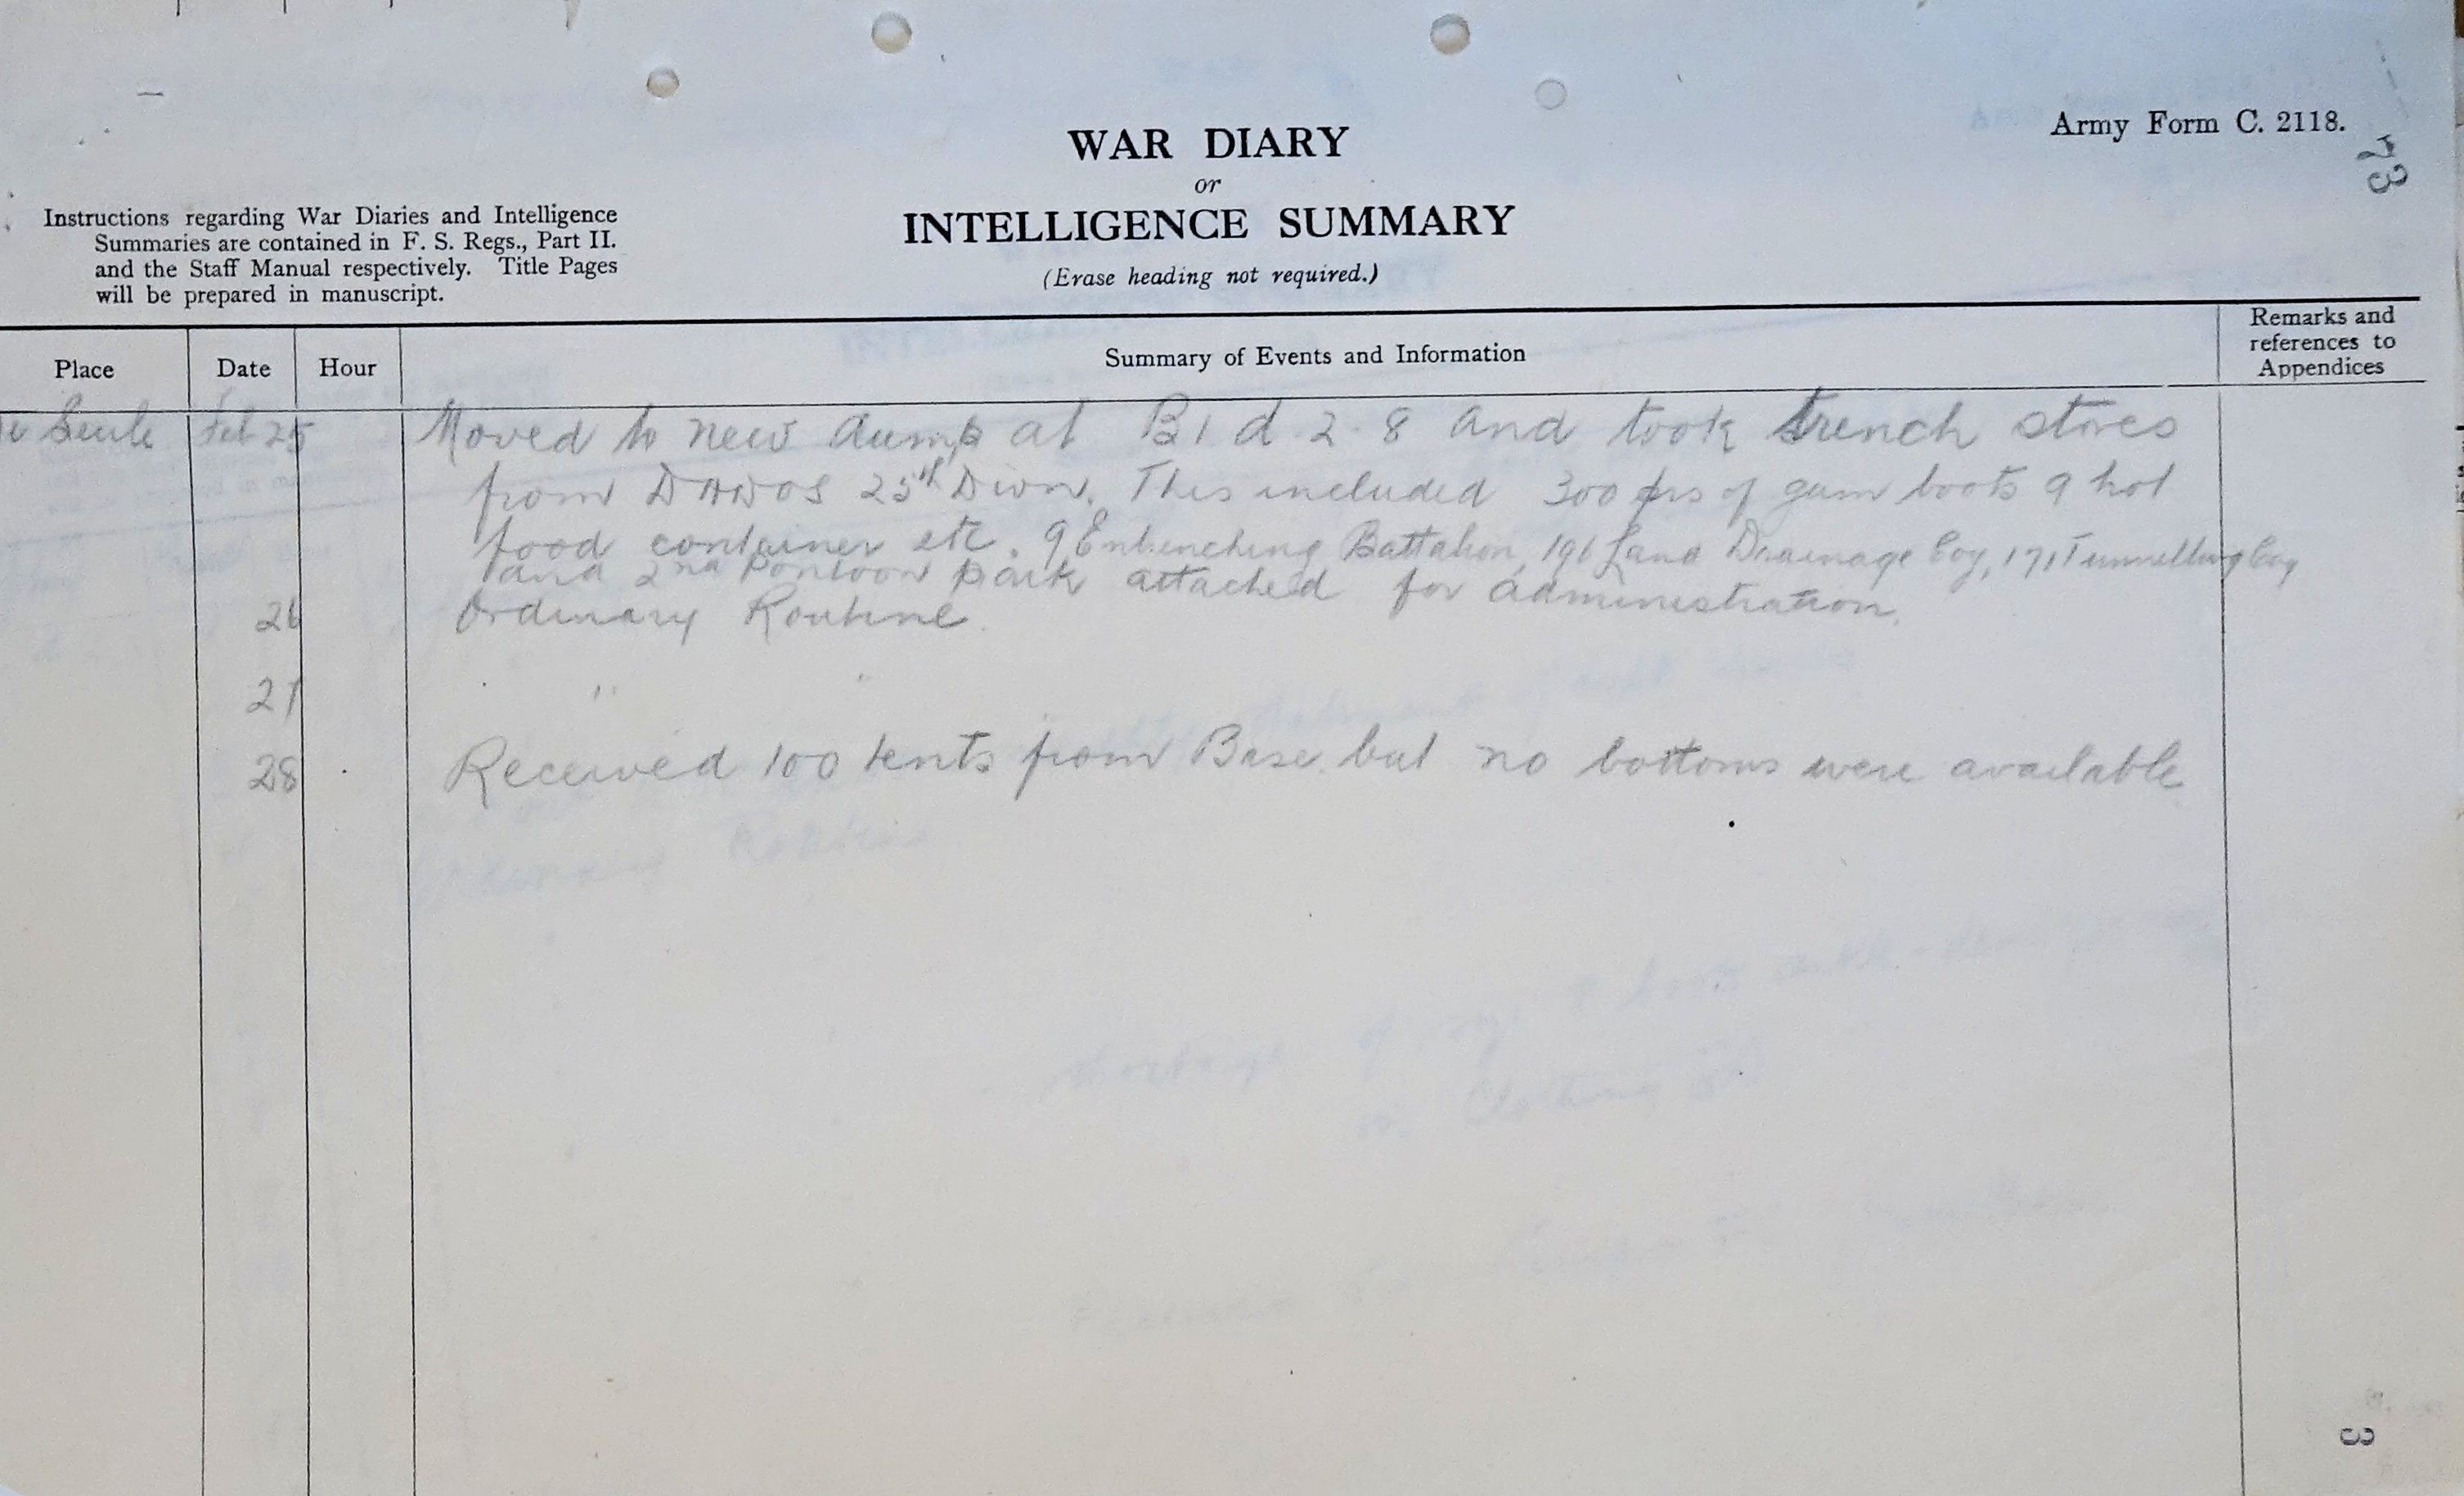 Army Form C. 2118.
73
WAR DIARY
or
INTELLIGENCE SUMMARY
(Erase heading not required.)
Instructions regarding War Diaries and Intelligence
Summaries are contained in F. S. Regs., Part II.
and the Staff Manual respectively. Title Pages
will be prepared in manuscript.
Place Date Hour Summary of Events and Information Remarks and
references to
Appendices
Seule Feb 25 Moved to new dump at B1 d 2.8 and took trench stores
from DADOS 25th Divn. This included 300 prs of gum boots 9 hot
food container etc. 9 Entrenching Battalion, 196 Land Drainage Coy, 171 Tunnelling Coy
and 2nd Pontoon Park attached for administration.
26 Ordinary Routine.
27 " "
28 Received 100 tents from Base but no bottoms were available
3